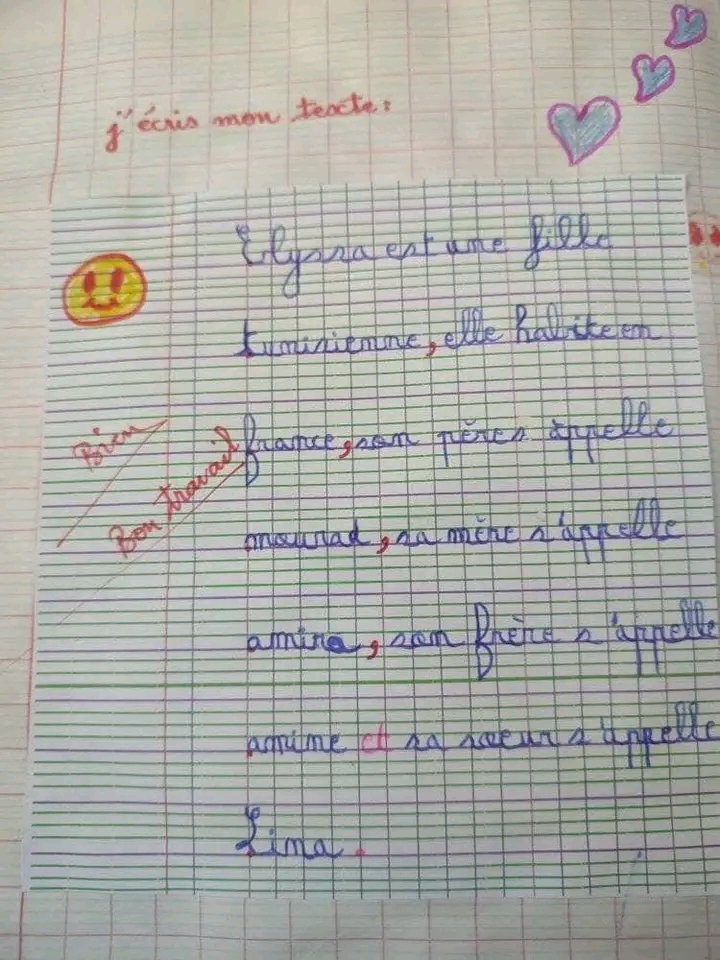 j'écris mon texte :
Elyssa est une fille
tunisienne, elle habite en
france, son père s appelle
mourad, sa mère s'appelle
amira, son frère s'appelle
amime et sa sœur s'appelle
Lima.
Bien
Bon travail